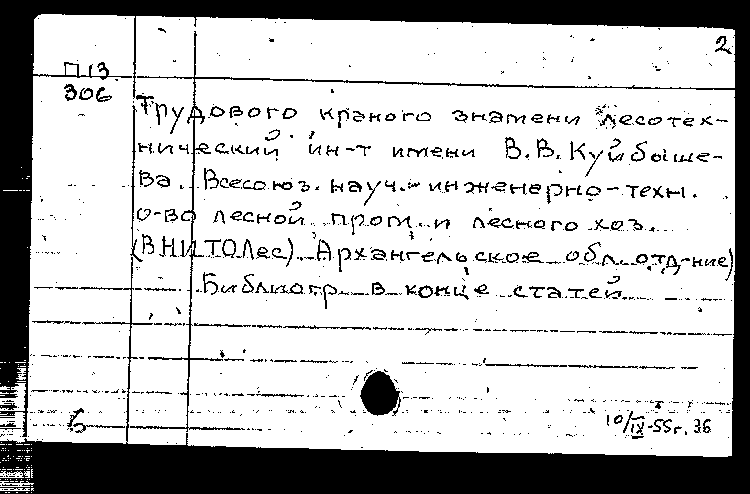 2
П13
306
Трудового краного знамени лесотех-
нический ин-т имени В.В. Куйбыше-
ва. Всесоюз. науч.-инженерно-техн.
о-во лесной пром. и лесного хоз.
(ВНИТОЛес). Архангельское обл. отд-ние)
Библиогр. в конце статей
б
10/IX-55г. 36